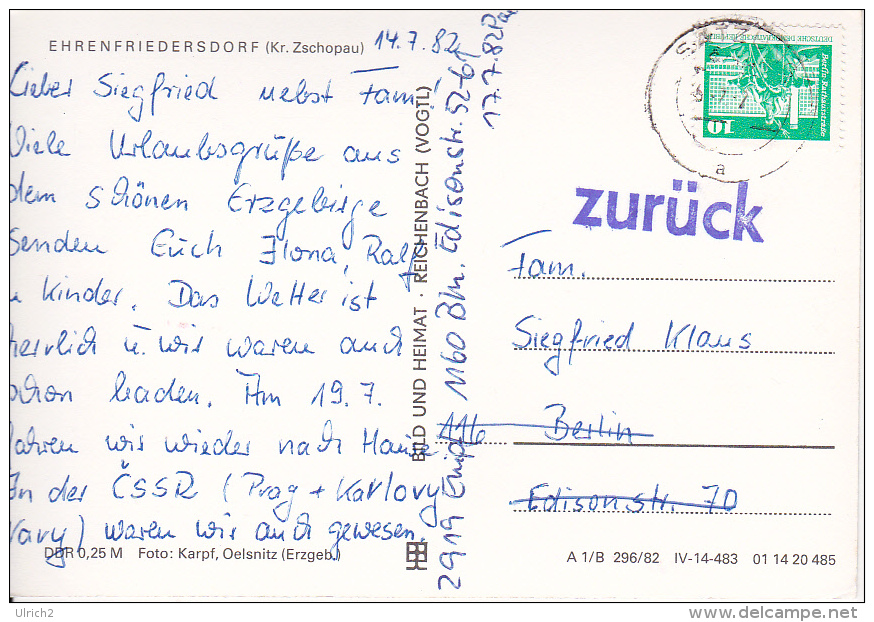 EHRENFRIEDERSDORF (Kr. Zschopau)
14.7.82
Lieber Siegfried nebst Fam.!
Viele Urlaubsgrüße aus
dem schönen Erzgebirge
senden Euch Ilona, Ralf
u. Kinder. Das Wetter ist
herrlich u. wir waren auch
schon baden. Am 19.7.
fahren wir wieder nach Hause.
In der ČSSR (Prag + Karlovy
Vary) waren wir auch gewesen.
DDR 0,25 M Foto: Karpf, Oelsnitz (Erzgeb.)
BILD UND HEIMAT · REICHENBACH (VOGTL)
2919 Empf. 1160 Bln. Edisonstr. 52
17.7.82
DEUTSCHE DEMOKRATISCHE REPUBLIK
10
a
zurück
Fam.
Siegfried Klaus
116 Berlin
Edisonstr. 70
A 1/B 296/82 IV-14-483 01 14 20 485
Ulrich2
delcampe.net